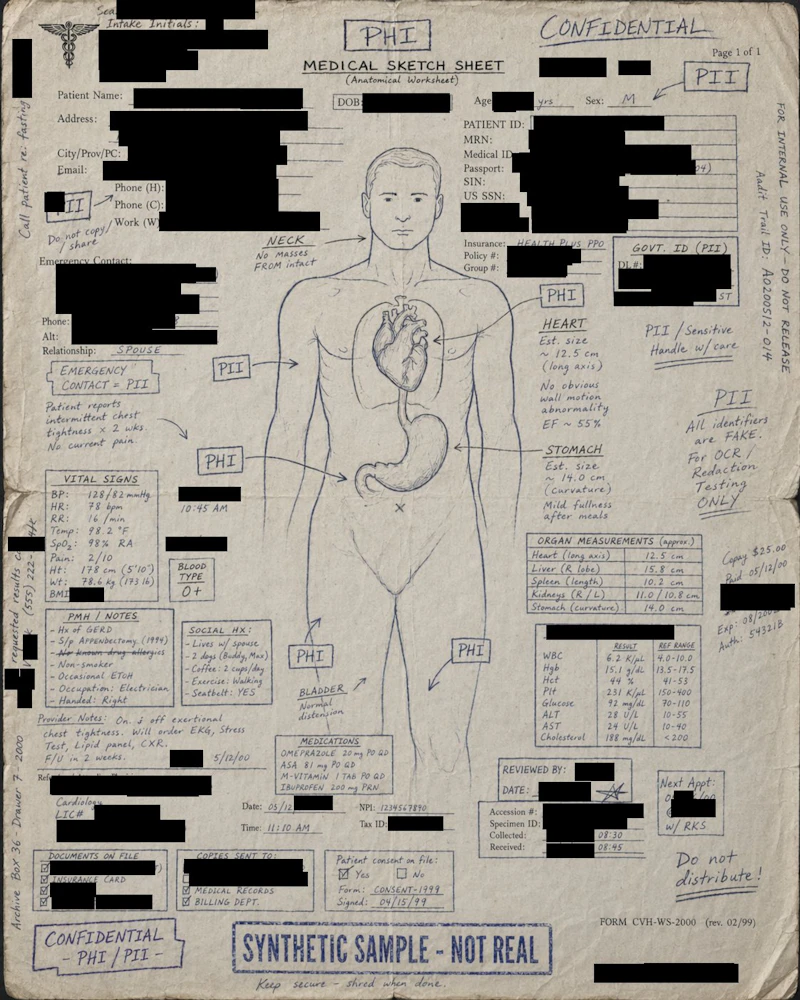 Sea
Intake Initials:
PHI
CONFIDENTIAL
Page 1 of 1
MEDICAL SKETCH SHEET
(Anatomical Worksheet)
PII
Patient Name:
DOB:
Age yrs Sex: M
Address:
City/Prov/PC:
Email:
Phone (H):
Phone (C):
Work (W)
PII
Do not copy
/ share
Call patient re: fasting
PATIENT ID:
MRN:
Medical ID
Passport:
SIN:
US SSN:
04)
FOR INTERNAL USE ONLY - DO NOT RELEASE
Aadit Trail ID: A0200512-014
NECK
No masses
FROM intact
Insurance: HEALTH PLUS PPO
Policy #:
Group #:
GOVT. ID (PII)
DL#:
ST
Emergency Contact:
Phone:
Alt:
Relationship: SPOUSE
EMERGENCY
CONTACT = PII
PII
PHI
HEART
Est. size
~ 12.5 cm
(long axis)
No obvious
wall motion
abnormality
EF ~ 55%
PII / Sensitive
Handle w/ care
Patient reports
intermittent chest
tightness x 2 wks.
No current pain.
PHI
STOMACH
Est. size
~ 14.0 cm
(curvature)
Mild fullness
after meals
PII
All identifiers
are FAKE.
For OCR /
Redaction
Testing
ONLY
VITAL SIGNS
BP: 128/82 mmHg
HR: 78 bpm
RR: 16 /min
Temp: 98.2 °F
SpO₂: 98% RA
Pain: 2/10
Ht: 178 cm (5'10")
Wt: 78.6 kg (173 lb)
BMI
10:45 AM
BLOOD
TYPE
O+
requested results
(555) 222-
ORGAN MEASUREMENTS (approx.)
Heart (long axis) 12.5 cm
Liver (R lobe) 15.8 cm
Spleen (length) 10.2 cm
Kidneys (R / L) 11.0 / 10.8 cm
Stomach (curvature) 14.0 cm
Copay $25.00
Paid 05/12/00
Exp: 08/200
Auth: 54321B
PMH / NOTES
- Hx of GERD
- S/p APPENDECTOMY (1994)
- No known drug allergies
- Non-smoker
- Occasional ETOH
- Occupation: Electrician
- Handed: Right
SOCIAL HX:
- Lives w/ spouse
- 2 dogs (Buddy, Max)
- Coffee: 2 cups/day
- Exercise: Walking
- Seatbelt: YES
PHI
PHI
BLADDER
Normal
distension
RESULT REF RANGE
WBC 6.2 K/µL 4.0-10.0
Hgb 15.1 g/dL 13.5-17.5
Hct 44 % 41-53
Plt 231 K/µL 150-400
Glucose 92 mg/dL 70-110
ALT 28 U/L 10-55
AST 24 U/L 10-40
Cholesterol 188 mg/dL <200
Provider Notes: On
off exertional
chest tightness. Will order EKG, Stress
Test, Lipid panel, CXR.
F/U in 2 weeks. 5/12/00
MEDICATIONS
OMEPRAZOLE 20 mg PO QD
ASA 81 mg PO QD
M-VITAMIN 1 TAB PO QD
IBUPROFEN 200 mg PRN
REVIEWED BY:
DATE:
Next Appt:
w/ RKS
Cardiology
LIC#
Date: 05/12
NPI: 1234567890
Time: 11:10 AM
Tax ID:
Accession #:
Specimen ID:
Collected: 08:30
Received: 08:45
Archive Box 36 - Drawer 7 - 2000
DOCUMENTS ON FILE
INSURANCE CARD
COPIES SENT TO:
MEDICAL RECORDS
BILLING DEPT.
Patient consent on file:
Yes No
Form: CONSENT-1999
Signed: 04/15/99
Do not
distribute!
FORM CVH-WS-2000 (rev. 02/99)
CONFIDENTIAL
- PHI / PII -
SYNTHETIC SAMPLE - NOT REAL
Keep secure - shred when done.